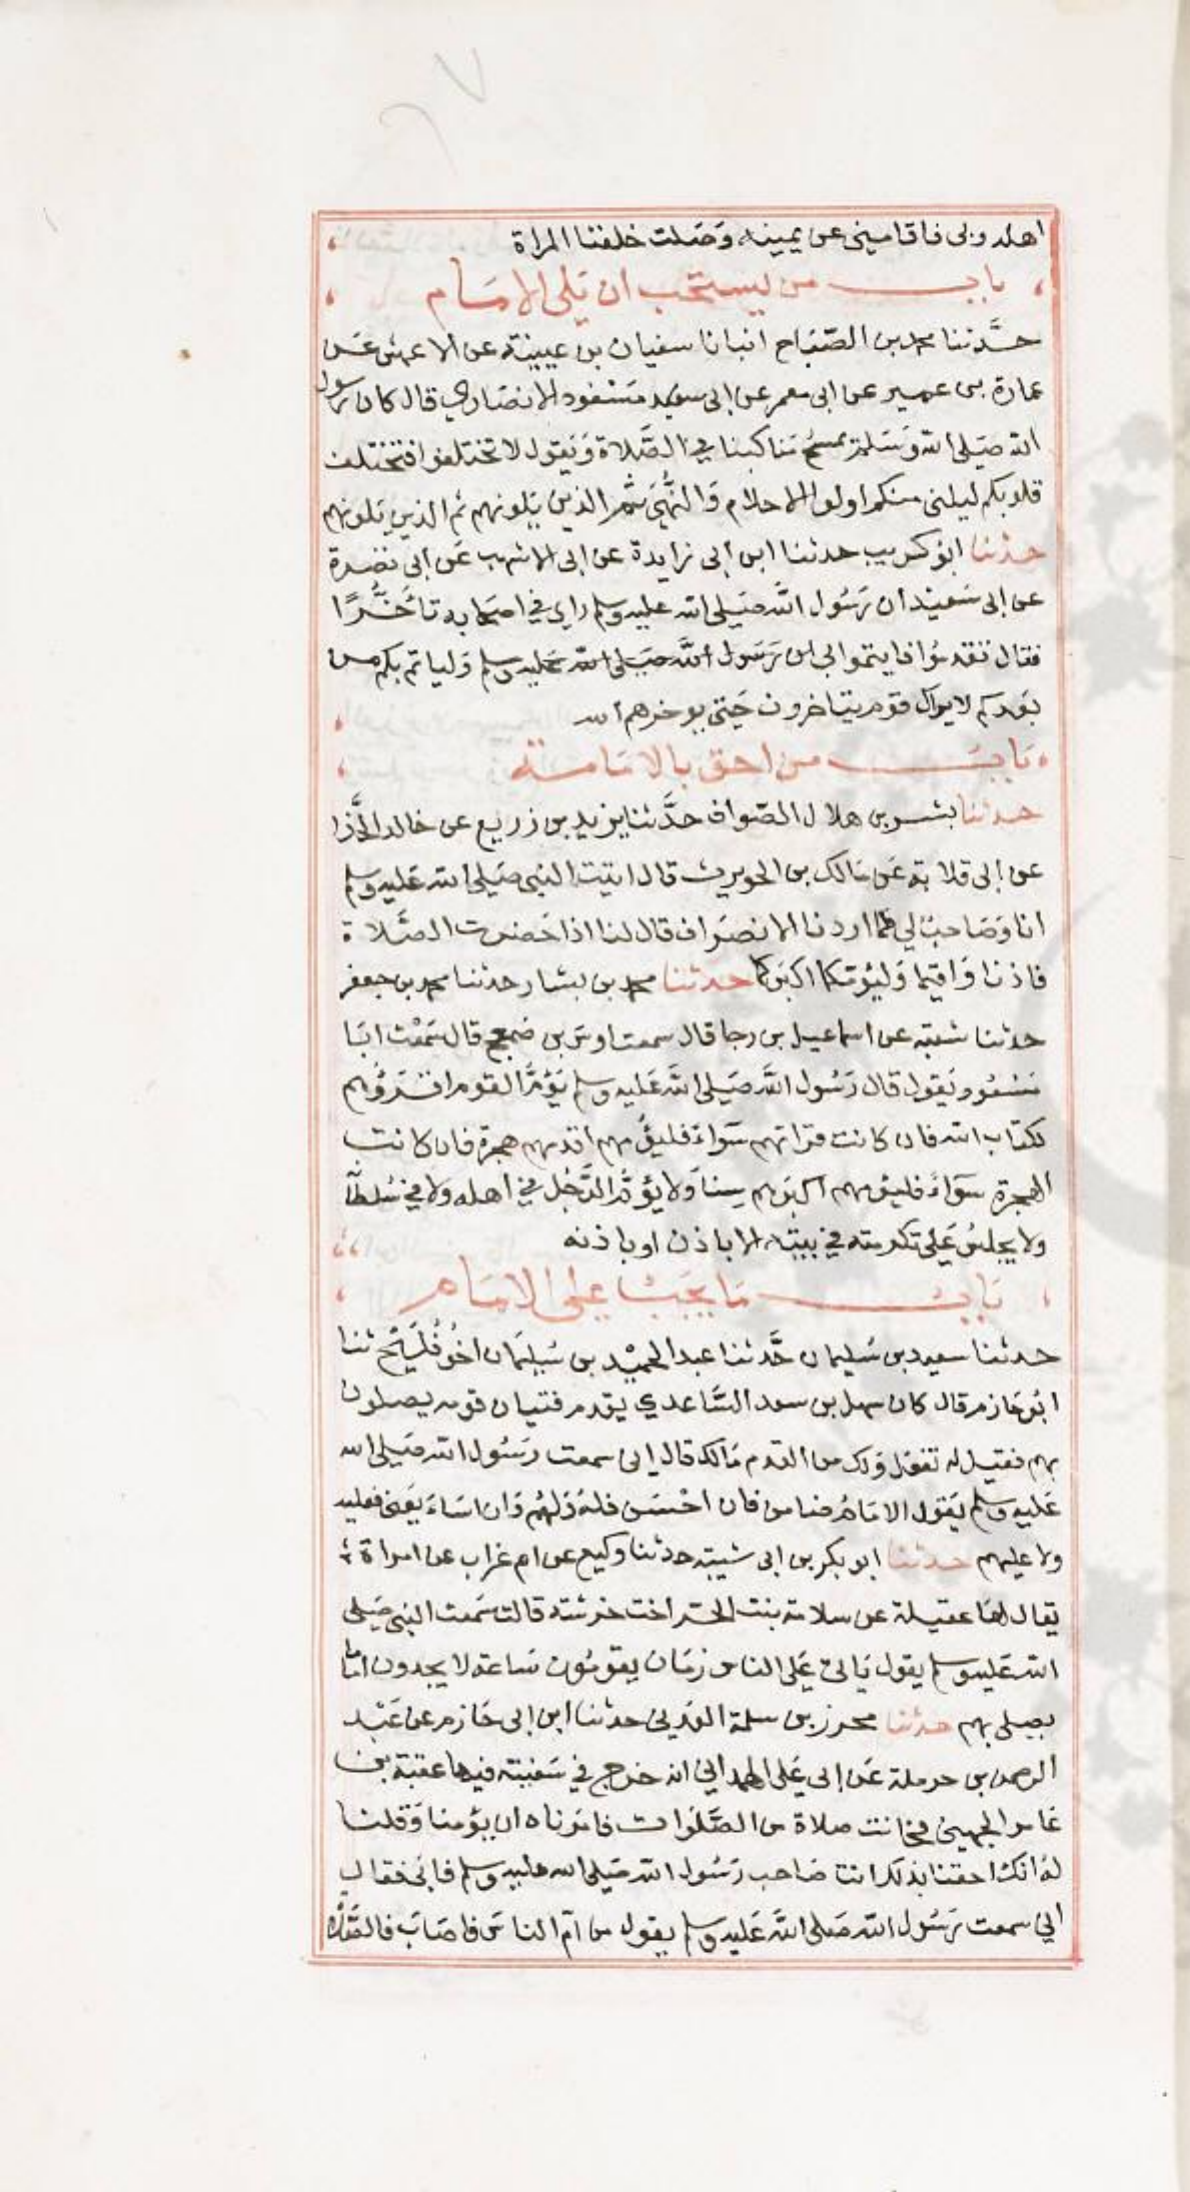 اهله وبى فاقامينى عن يمينه وصلت خلفنا المراة
باب من يستحب ان يلى الامام
حدثنا محمد بن الصباح انبانا سفيان بن عيينة عن الاعمش عن
عمارة بن عمير عن ابى معمر عن ابى سعيد مسعود الانصاري قال كان رسول
الله صلى الله وسلم يمسح مناكبنا في الصلاة ويقول لا تختلفوا فتختلف
قلوبكم ليلنى منكم اولوا الاحلام والنهى ثم الذين يلونهم ثم الذين يلونهم
حدثنا ابو كريب حدثنا ابن ابى زايدة عن ابى الاشهب عن ابى نضرة
عن ابى سعيد ان رسول الله صلى الله عليه وسلم راى في اصحابه تاخرا
فقال تقدموا فايتموا بى ان رسول الله صلى الله عليه وسلم وليا تم بكم من
بعدكم لا يزال قوم يتاخرون حتى يوخرهم الله
باب من احق بالامامة
حدثنا بشر بن هلال الصواف حدثنا يزيد بن زريع عن خالد الحذا
عن ابى قلابة عن مالك بن الحويرث قال اتيت النبى صلى الله عليه وسلم
انا وصاحب لي فلما اردنا الانصراف قال لنا اذا حضرت الصلاة
فاذنا واقيما وليؤمكما اكبركما حدثنا محمد بن بشار حدثنا محمد بن جعفر
حدثنا شعبة عن اسماعيل بن رجا قال سمعت اوس بن ضمعج قال سمعت ابا
مسعود يقول قال رسول الله صلى الله عليه وسلم يؤم القوم اقرؤهم
لكتاب الله فان كانت قراتهم سواء فليؤمهم اقدمهم هجرة فان كانت
الهجرة سواء فليؤمهم اكبرهم سنا ولا يؤم الرجل في اهله ولا في سلطا
ولا يجلس على تكرمته في بيته الا باذن او باذنه
باب ما يجب على الامام
حدثنا سعيد بن سليمان حدثنا عبد الحميد بن سليمان اخو فليح ثنا
ابو حازم قال كان سهل بن سعد الساعدي يقدم فتيان قومه يصلون
بهم فقيل له تفعل ولك من القدم مالك قال انى سمعت رسول الله صلى الله
عليه وسلم يقول الامام ضامن فان احسن فله ولهم وان اساء يعنى فعليه
ولا عليهم حدثنا ابو بكر بن ابى شيبة حدثنا وكيع عن ام غراب عن امراة
يقال لها عقيلة عن سلامة بنت الحر اخت خرشة قالت سمعت النبى صلى
الله عليه وسلم يقول ياتى على الناس زمان يقومون ساعة لا يجدون اماما
يصلى بهم حدثنا محرز بن سلمة العدنى حدثنا ابن ابى حازم عن عبد
الرحمن بن حرملة عن ابى على الهمدانى انه خرج في سفينة فيها عقبة بن
عامر الجهنى فحانت صلاة من الصلوات فامرناه ان يؤمنا وقلنا
له انك احقنا بذلك انت صاحب رسول الله صلى الله عليه وسلم فابى فقال
انى سمعت رسول الله صلى الله عليه وسلم يقول من ام الناس فاصاب فالصلاة